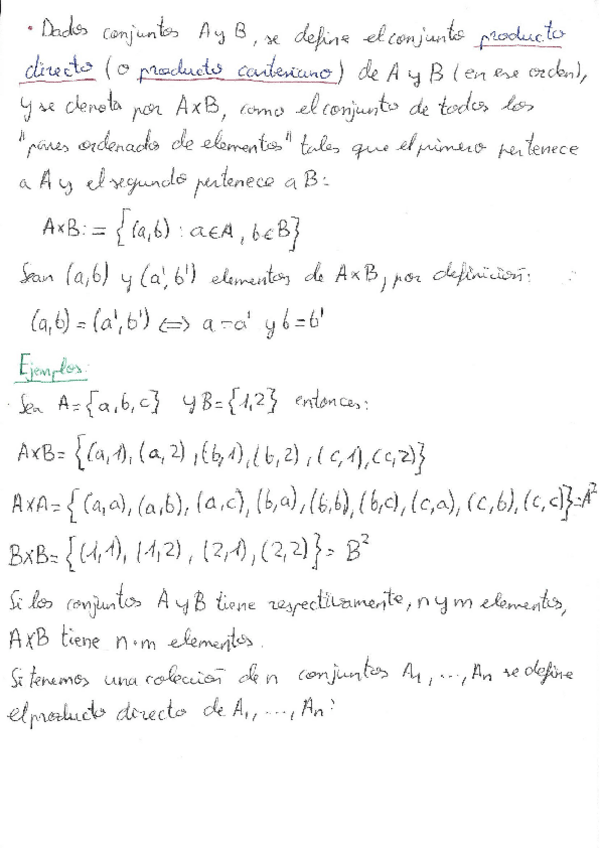 · Dados conjuntos A y B, se define el conjunto producto
directo (o producto cartesiano) de A y B (en ese orden),
y se denota por A×B, como el conjunto de todos los
"pares ordenado de elementos" tales que el primero pertenece
a A y el segundo pertenece a B:
A×B:= {(a,b) : a∈A, b∈B}
Sean (a,b) y (a',b') elementos de A×B, por definición:
(a,b) = (a',b') ⟺ a=a' y b=b'
Ejemplos:
· Sea A={a,b,c} y B={1,2} entonces:
A×B= {(a,1), (a,2), (b,1), (b,2), (c,1), (c,2)}
A×A= {(a,a), (a,b), (a,c), (b,a), (b,b), (b,c), (c,a), (c,b), (c,c)}=A²
B×B= {(1,1), (1,2), (2,1), (2,2)} = B²
Si los conjuntos A y B tiene respectivamente, n y m elementos,
A×B tiene n·m elementos.
Si tenemos una colección de n conjuntos A₁, ..., Aₙ se define
el producto directo de A₁, ..., Aₙ: